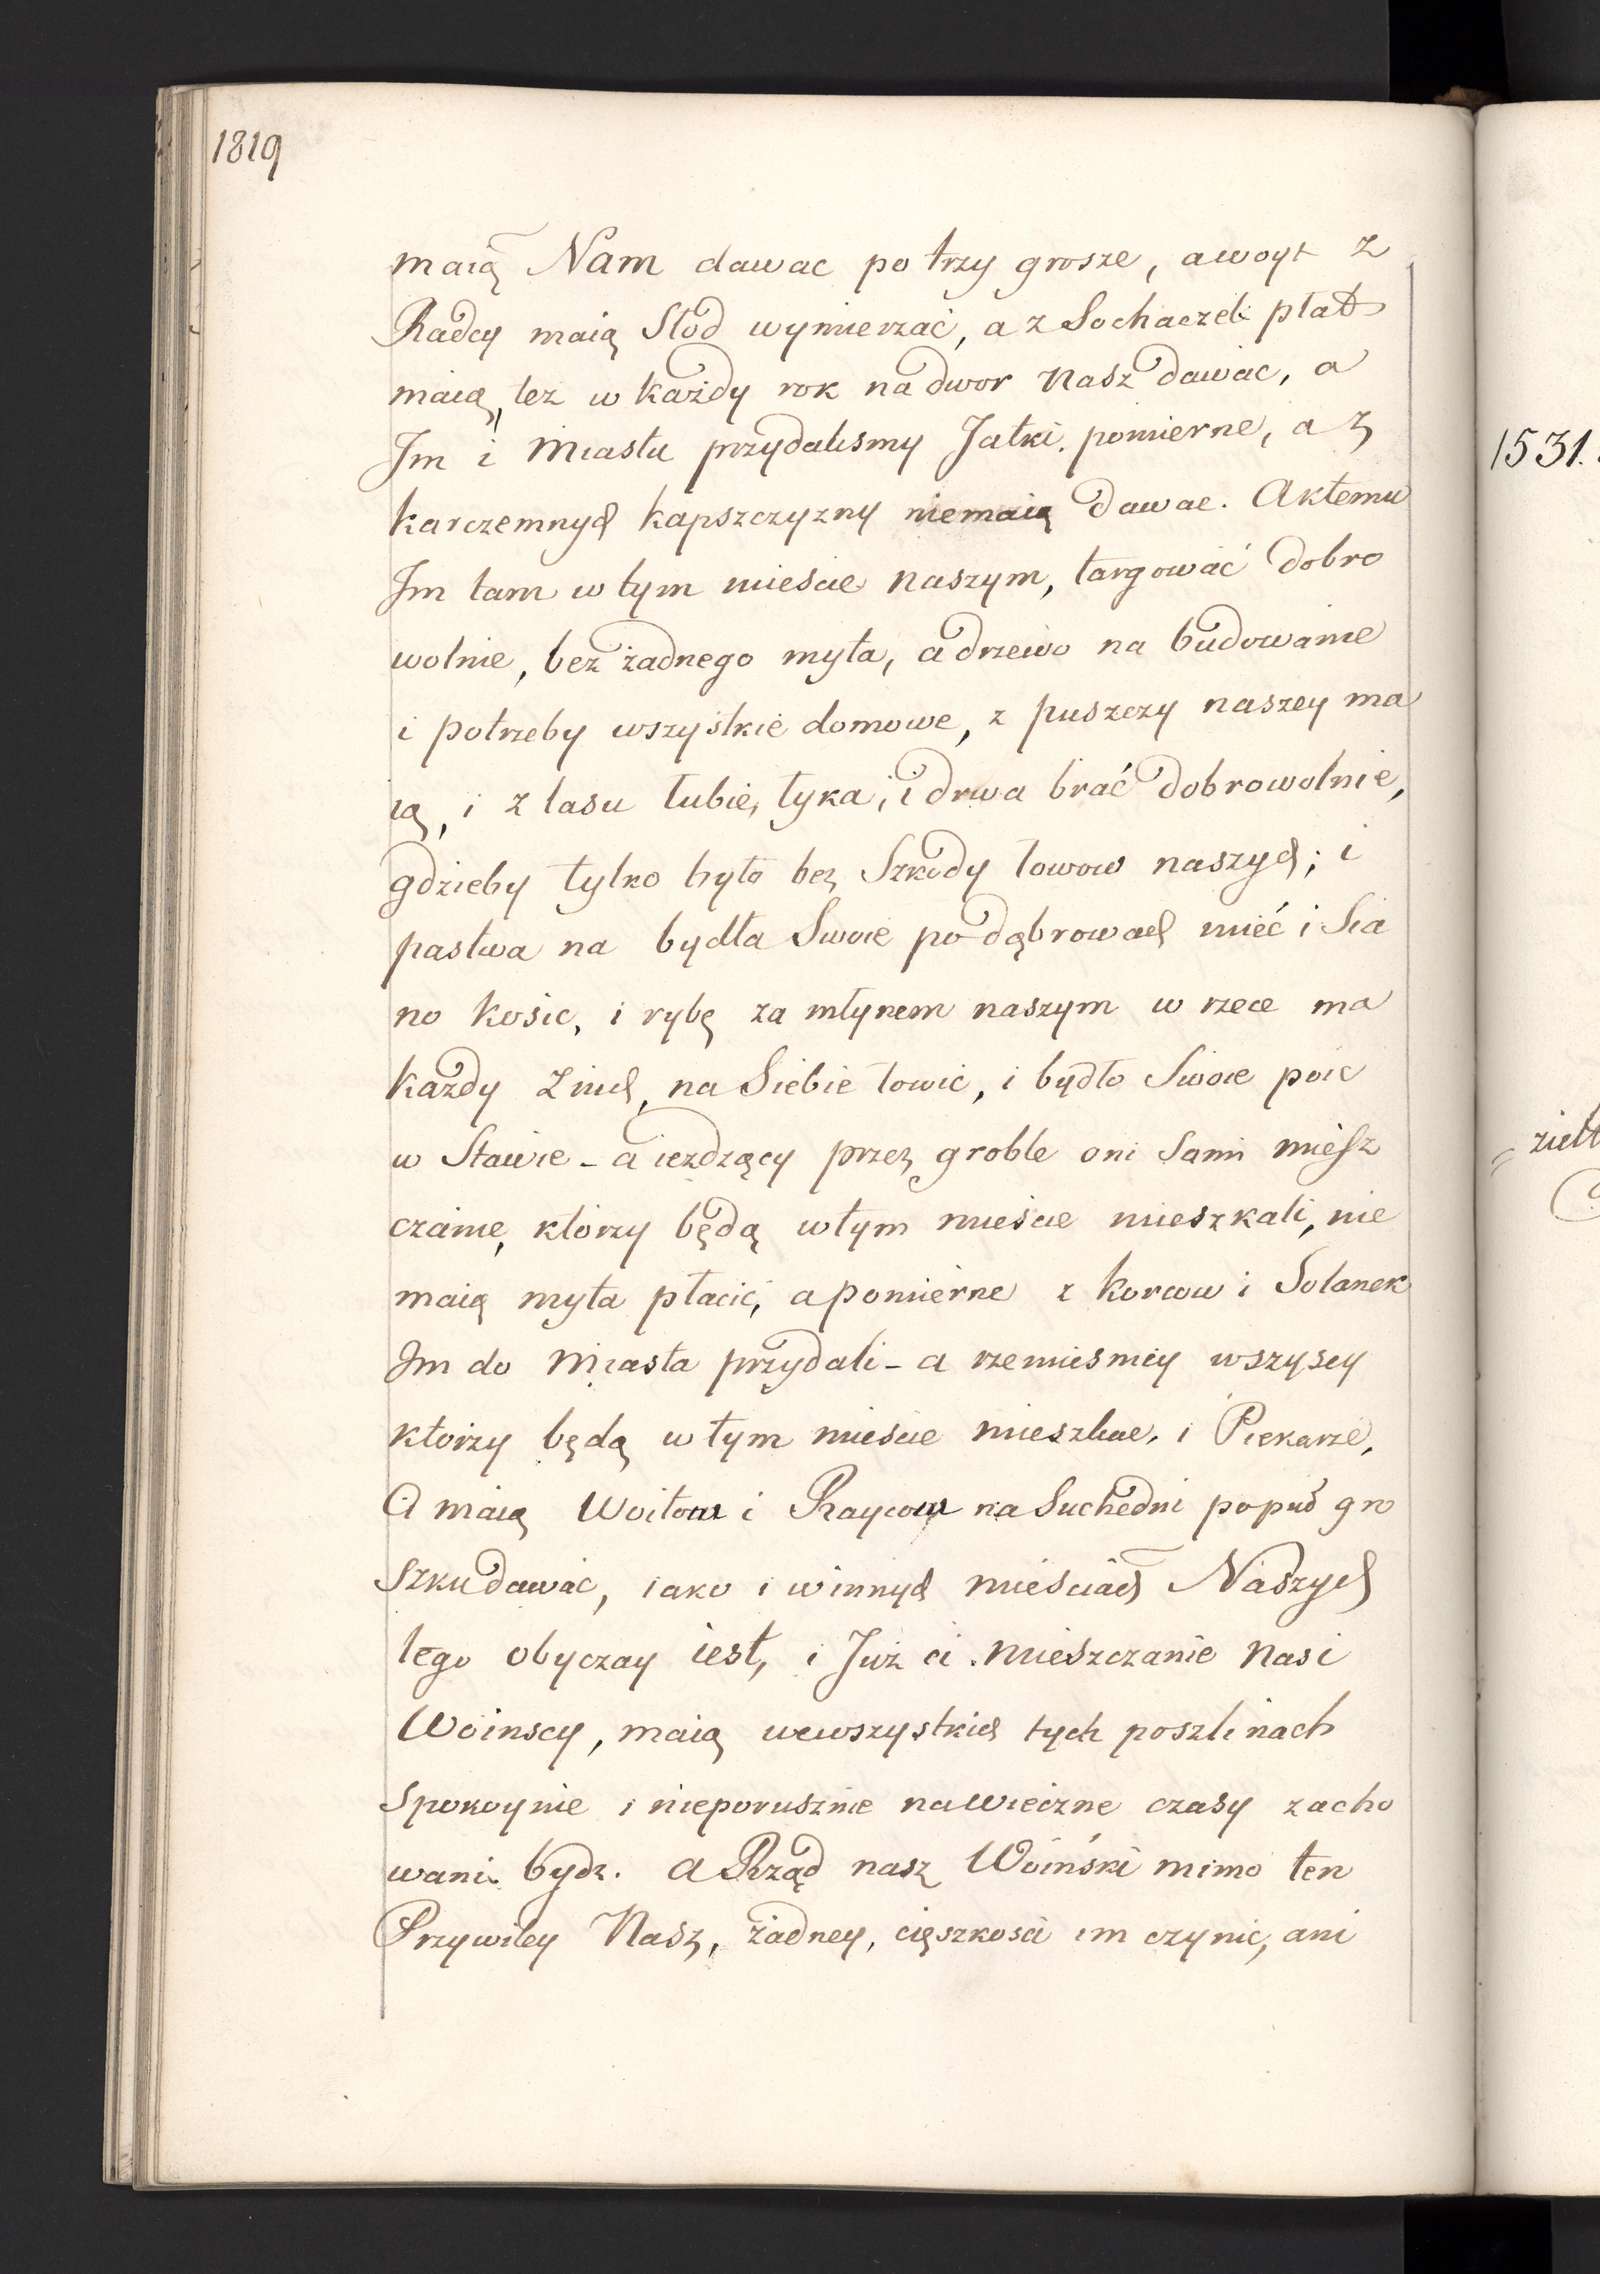 1819
maią Nam dawac po trzy grosze, a woyt z
Radcy maią Słod wymierzać, a z Sochaczek płat
maią też w każdy rok na dwor nasz dawac, a
Im i Miastu przydalismy Jatki pomierne, a z
karczemnych kapszczyzny niemaią dawac. A ktemu
Im tam w tym miescie naszym, targować dobro
wolnie, bez żadnego myta, a drzewo na budowanie
i potrzeby wszystkie domowe, z puszczy naszey ma
ią, i z lasu łubie, łyka, i drwa brać dobrowolnie,
gdzieby tylko było bez Szkody łowow naszych; i
pastwa na bydła Swoie po dąbrowach mieć i Sia
no kosic, i rybę za młynem naszym w rzece ma
każdy z nich, na Siebie łowic, i bydło Swoie poic
w Stawie - a iezdzący przez groble oni Sami miesz
czanie, ktorzy będą w tym miescie mieszkali, nie
maią myta płacić, a pomierne z korcow i Solanek
Im do Miasta przydali - a rzemiesnicy wszyscy
ktorzy będą w tym miescie mieszkac, i Piekarze,
Ci maią Woitow i Raycow na Suchedni po puł gro
szku dawać, iako i w innych mieściach Naszych
tego obyczay iest, i Już ci mieszczanie nasi
Woinscy, maią wewszystkich tych poszlinach
spokoynie i nieporusznie nawieczne czasy zacho
wani bydz. A Rząd nasz Woiński mimo ten
Przywiley Nasz, żadney, cięszkosci im czynic, ani
1531.
= zielt